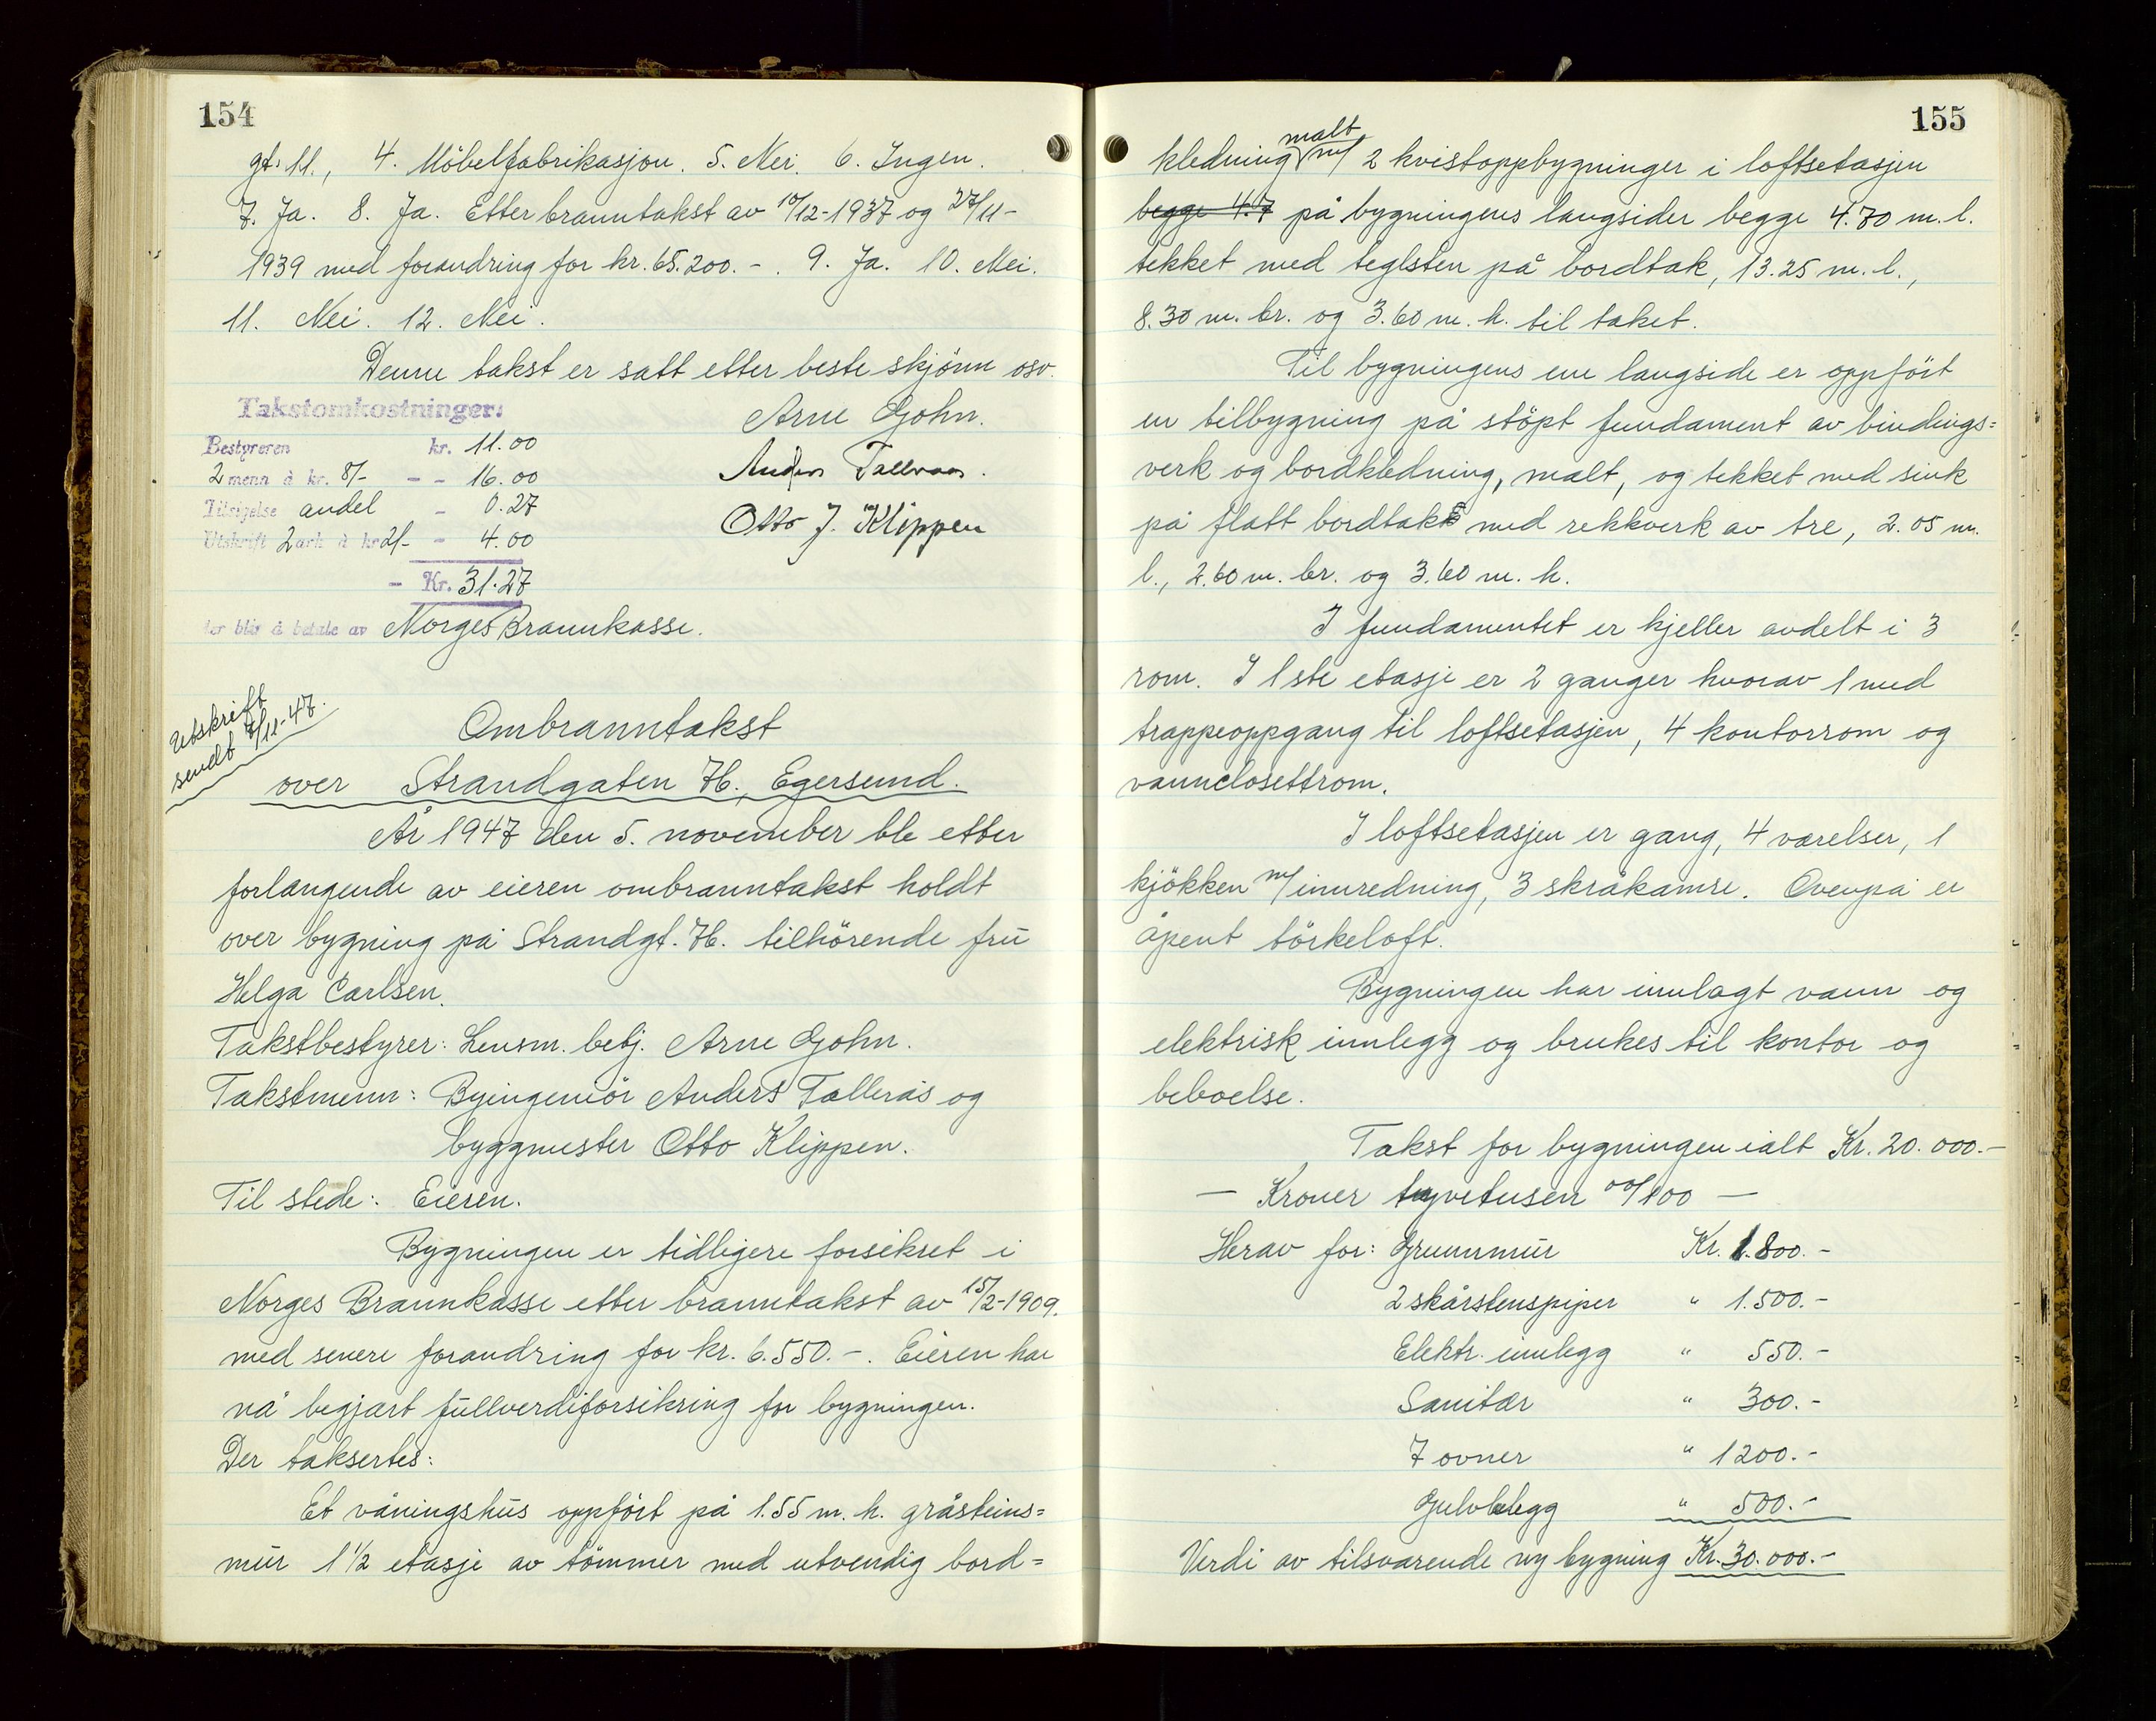 154
gt. 11., 4. Möbelfabrikasjon. 5. Nei. 6. Ingen.
7. Ja. 8. Ja. Etter branntakst av 10/12-1937 og 27/11-
1939 med forandring for kr. 65.200.-. 9. Ja. 10. Nei.
11. Nei. 12. Nei.
Denne takst er satt etter beste skjönn osv.
Takstomkostninger:
Arne Gjohn.
Bestyreren kr. 11.00
Anders Tallraas.
2 menn à kr. 8/- - - 16.00
Tilsigelse andel - 0.27
Otto J. Klippen
Utskrift 2 ark à kr 2/- - 4.00
- Kr. 31.27
der blir å betale av Norges Brannkasse.
Utskrift
sendt 7/11-47.
Ombranntakst
over Strandgaten 76., Egersund.
År 1947 den 5. november ble etter
forlangende av eieren ombranntakst holdt
over bygning på Strandgt. 76. tilhörende fru
Helga Carlsen.
Takstbestyrer: Lensm. betj. Arne Gjohn.
Takstmenn: Byingeniör Anders Tallerås og
byggmester Otto Klippen.
Til stede: Eieren.
Bygningen er tidligere forsikret i
Norges Brannkasse etter branntakst av 15/2-1909.
med senere forandring for kr. 6.550.-. Eieren har
nå begjært fullverdiforsikring for bygningen.
Der taksertes:
Et våningshus oppfört på 1.55 m. h. gråsteins=
mur 1 1/2 etasje av tömmer med utvendig bord=
155
malt
kledning m/ 2 kvistoppbygninger i loftsetasjen
begge 4.7 på bygningens langsider begge 4.70 m. l.
tekket med teglsten på bordtak, 13.25 m. l.,
8.30 m. br. og 3.60 m. h. til taket.
Til bygningens ene langside er oppfört
en tilbygning på stöpt fundament av bindings=
verk og bordkledning, malt, og tekket med sink
på flatt bordtak med rekkverk av tre, 2.05 m.
l., 2.60 m. br. og 3.60 m. h.
I fundamentet er kjeller avdelt i 3
rom. I 1ste etasje er 2 ganger hvorav 1 med
trappeoppgang til loftsetasjen, 4 kontorrom og
vannclosettrom.
I loftsetasjen er gang, 4 værelser, 1
kjökken m/innredning, 3 skråkamre. Ovenpå er
åpent törkeloft.
Bygningen har innlagt vann og
elektrisk innlegg og brukes til kontor og
beboelse.
Takst for bygningen ialt Kr. 20.000.-
- Kroner tyvetusen 00/100 -
Herav for: Grunnmur Kr. 1.800.-
2 skårstenspiper " 1.500.-
Elektr. innlegg " 550.-
Sanitær " 300.-
7 ovner " 1200.-
Gulvbelegg " 500.-
Verdi av tilsvarende ny bygning Kr. 30.000.-